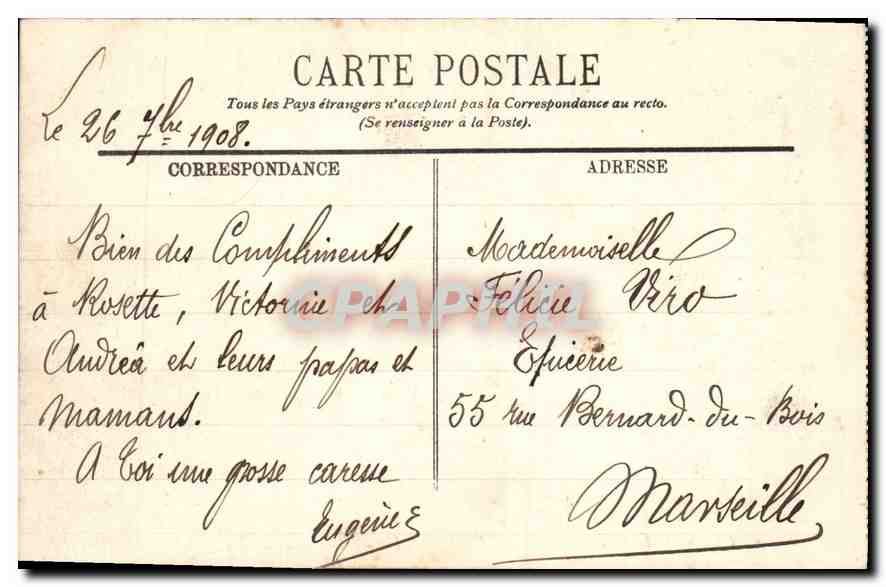 CARTE POSTALE
Tous les Pays étrangers n'acceptent pas la Correspondance au recto.
(Se renseigner à la Poste).
Le 26 7bre 1908.
CORRESPONDANCE
Bien des Compliments
à Rosette, Victorine et
Andréa et leurs papas et
mamans.
A toi une grosse caresse
Eugénie
ADRESSE
Mademoiselle
Félicie Viro
Epicerie
55 rue Bernard-du-Bois
Marseille
CPAPHIL